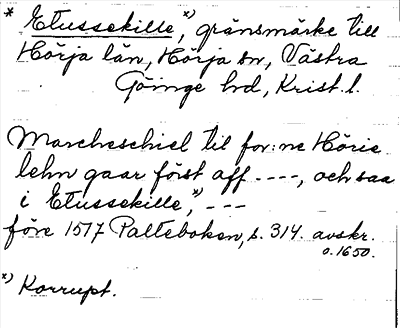 * Etussekille,*) gränsmärke till
Hörja län, Hörja sn, Västra
Göinge hd, Krist. l.
Marcheschiel til for:ne Hörie
lehn gaar först aff ----, och saa
i Etussekille,*) ---
före 1517 Palteboken, s. 314. avskr.
o. 1650.
*) Korrupt.